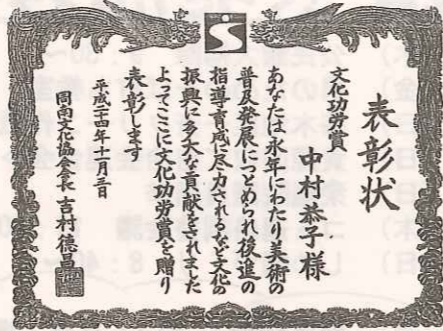 表彰状
文化功労賞
中村恭子様
あなたは永年にわたり美術の
普及発展につとめられ後進の
指導育成に尽力されるなど文化の
振興に多大な貢献をされました
よってここに文化功労賞を贈り
表彰します
平成二十四年十一月三日
周南文化協会会長 吉村徳昌